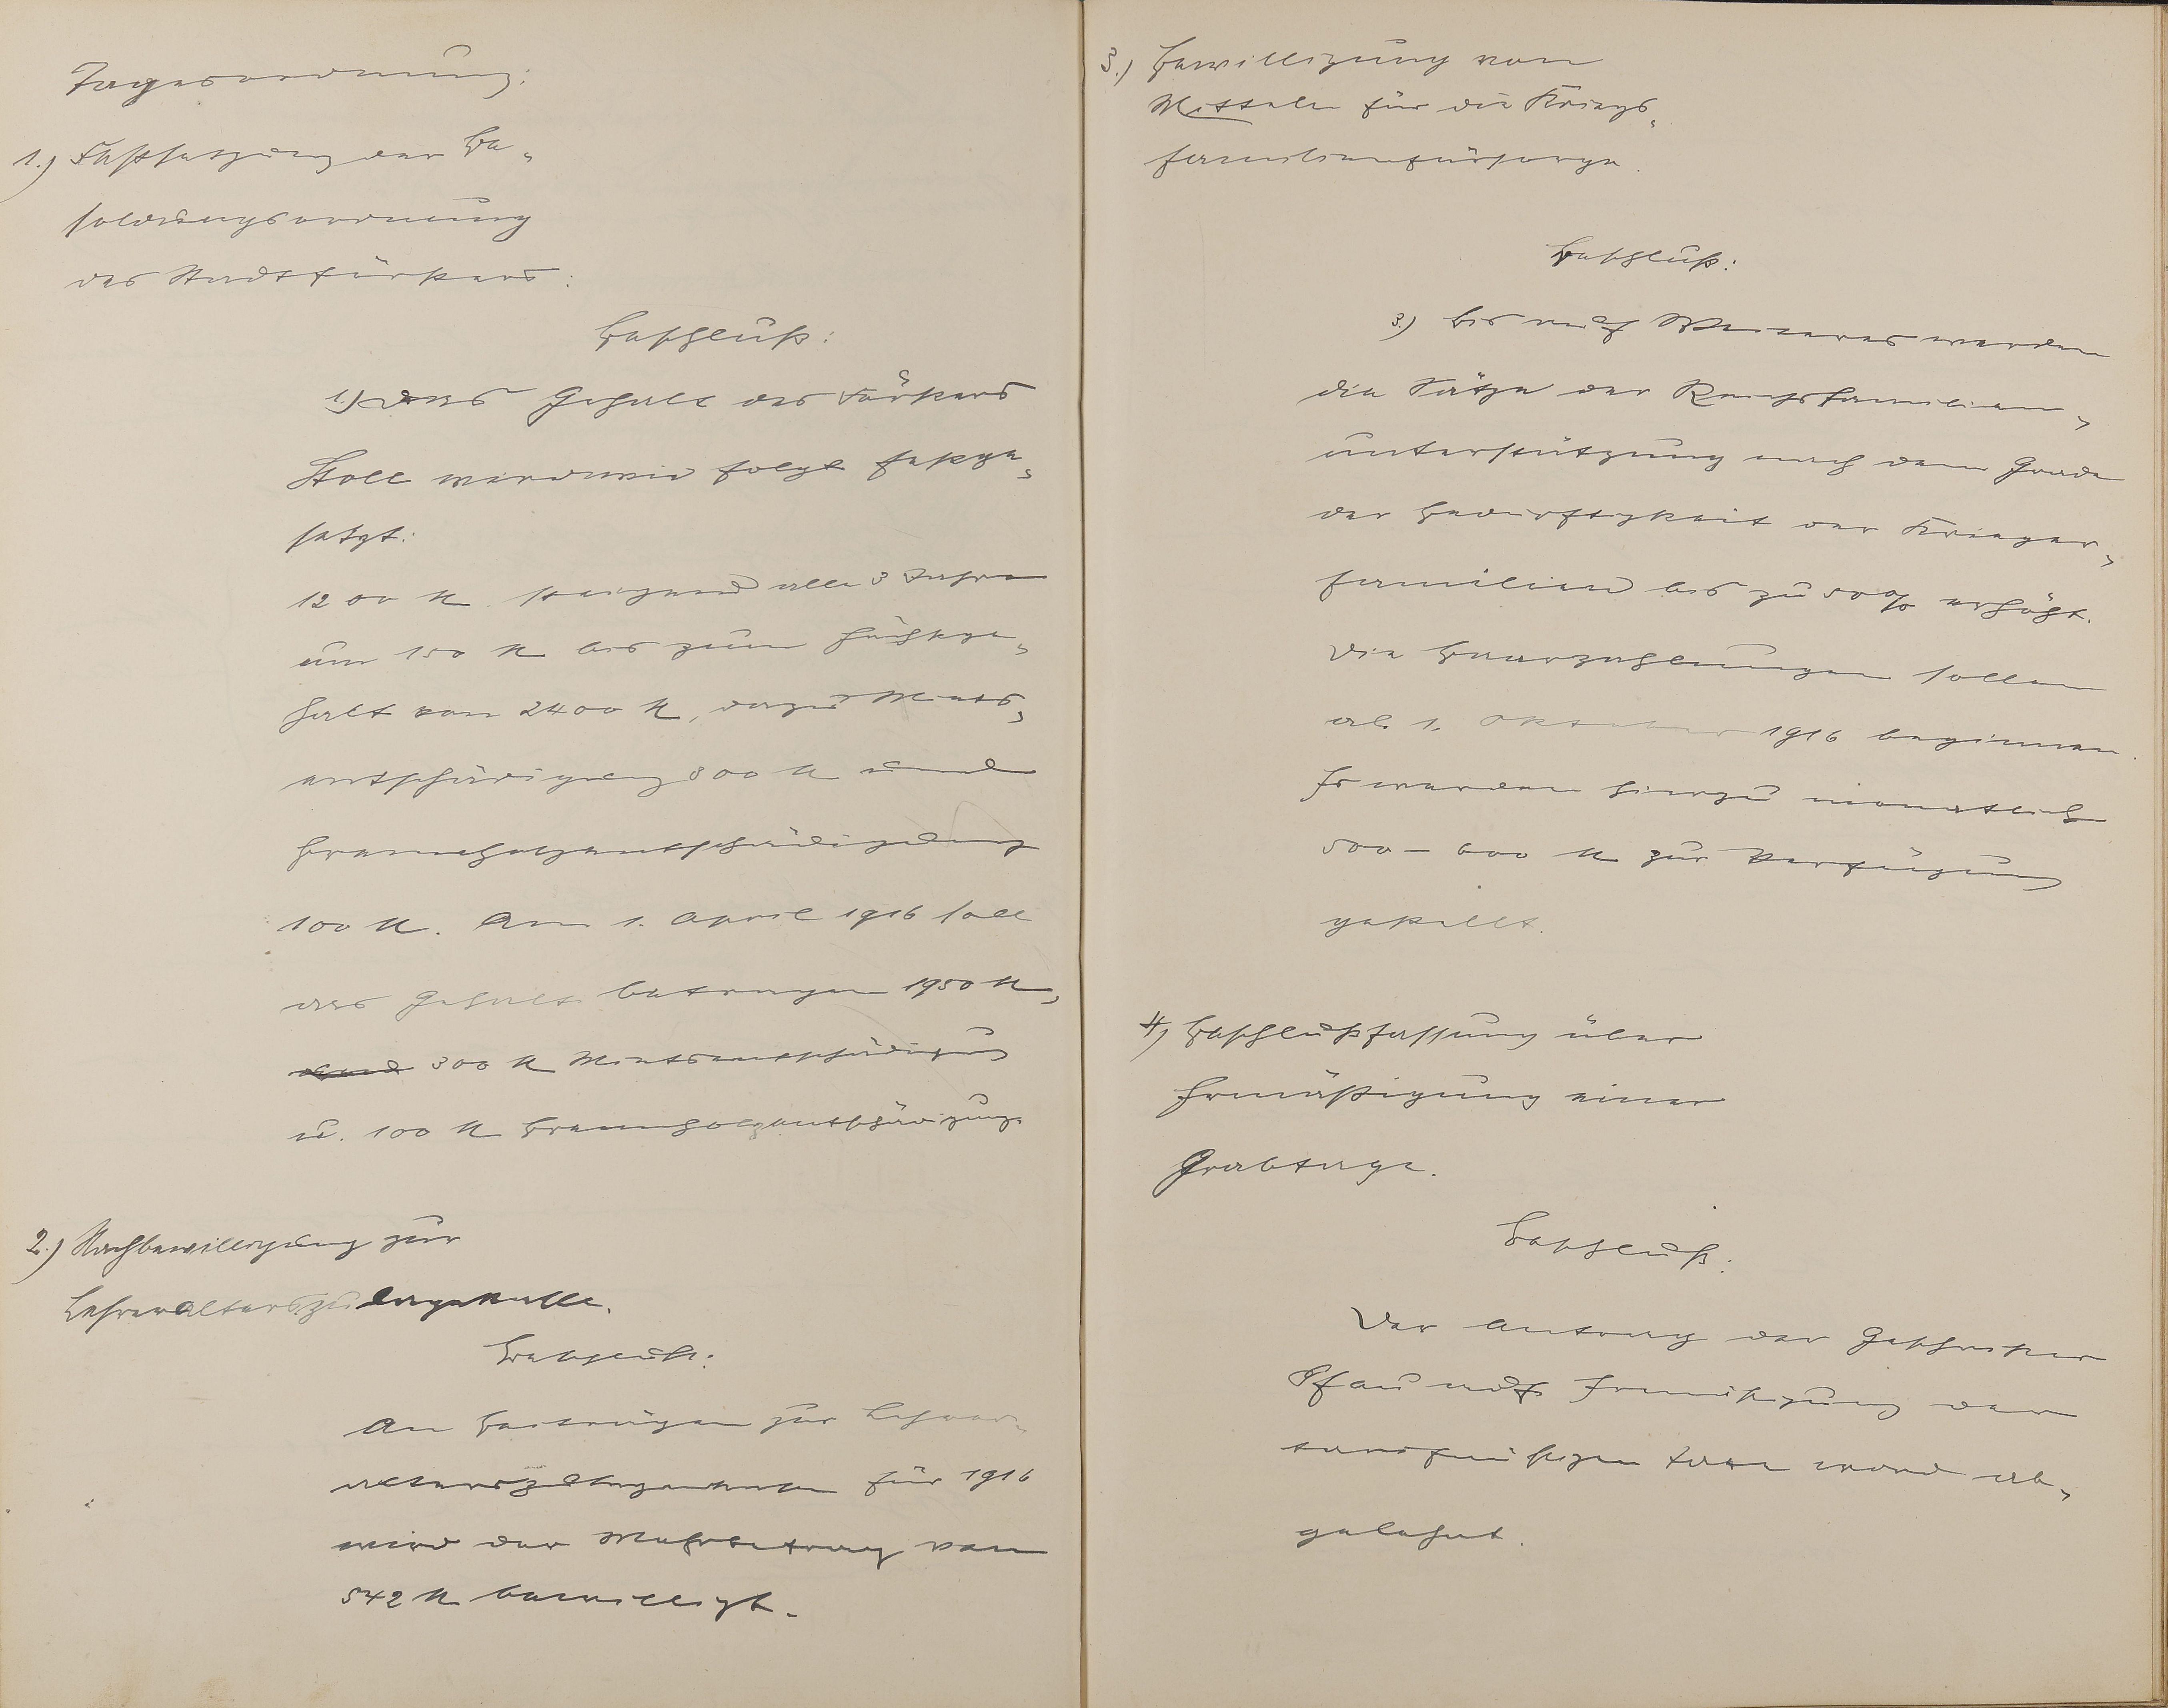 Tagesordnung:
1.) Festsetzung der Be-
soldungsordnung
des Stadtförsters:
Beschluß:
1.) Das Gehalt des Försters
Stoll wird wie folgt festge-
setzt:
1200 M steigend alle 3 Jahre
um 150 M bis zum Höchstge-
halt von 2400 M, dazu Miets-
entschädigung 300 M und
Brennholzentschädigung
100 M. Am 1. April 1916 soll
das Gehalt betragen 1950 M,
und 300 M Mietsentschädigung
u. 100 M Brennholzentschädigung.
2.) Nachbewilligung zur
Lehreralterszulagekasse.
Beschluß:
An Beiträgen zur Lehrer-
alterszulagekasse für 1916
wird der Mehrbetrag von
542 M bewilligt.
3.) Bewilligung von
Mitteln für die Kriegs-
familienfürsorge.
Beschluß:
3.) Bis auf Weiteres werden
die Sätze der Reichsfamilien-
unterstützung nach dem Grade
der Bedürftigkeit der Krieger-
familien bis zu 50% erhöht.
Die Baarzahlungen sollen
ab 1. Oktober 1916 beginnen.
Es werden hierzu monatlich
500 - 600 M zur Verfügung
gestellt.
4.) Beschlußfassung über
Ermäßigung einer
Grabtaxe.
Beschluß:
Der Antrag der Geschwister
Pfau auf Ermäßigung der
tarifmäßigen Taxe wird ab-
gelehnt.